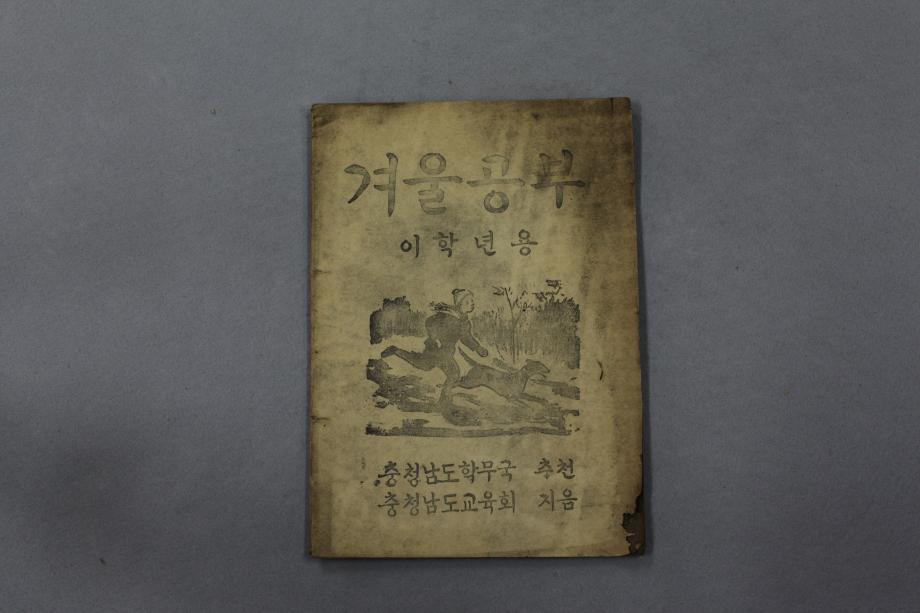 겨울공부
이학년용
충청남도학무국 추천
충청남도교육회 지음